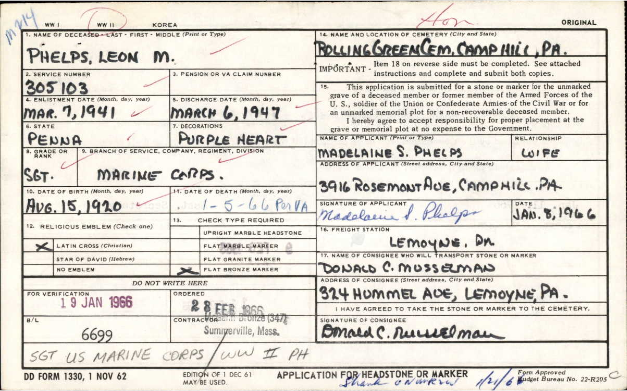 WW I WW II KOREA ORIGINAL
Hon
1. NAME OF DECEASED - LAST - FIRST - MIDDLE (Print or Type)
PHELPS, LEON M.
2. SERVICE NUMBER
305103
3. PENSION OR VA CLAIM NUMBER
4. ENLISTMENT DATE (Month, day, year)
MAR. 7, 1941
5. DISCHARGE DATE (Month, day, year)
MARCH 6, 1947
6. STATE
PENNA
7. DECORATIONS
PURPLE HEART
8. GRADE OR RANK
SGT.
9. BRANCH OF SERVICE, COMPANY, REGIMENT, DIVISION
MARINE CORPS.
10. DATE OF BIRTH (Month, day, year)
AUG. 15, 1920
11. DATE OF DEATH (Month, day, year)
1-5-66 Per VA
12. RELIGIOUS EMBLEM (Check one)
X LATIN CROSS (Christian)
STAR OF DAVID (Hebrew)
NO EMBLEM
13. CHECK TYPE REQUIRED
UPRIGHT MARBLE HEADSTONE
FLAT MARBLE MARKER
FLAT GRANITE MARKER
X FLAT BRONZE MARKER
DO NOT WRITE HERE
FOR VERIFICATION
19 JAN 1966
ORDERED
28 FEB 1966
B/L
6699
CONTRACTOR
Bronze (347)
Summerville, Mass.
SGT US MARINE CORPS / WW II PH
14. NAME AND LOCATION OF CEMETERY (City and State)
ROLLING GREEN CEM, CAMP HILL, PA.
IMPORTANT - Item 18 on reverse side must be completed. See attached
instructions and complete and submit both copies.
15. This application is submitted for a stone or marker for the unmarked
grave of a deceased member or former member of the Armed Forces of the
U. S., soldier of the Union or Confederate Armies of the Civil War or for
an unmarked memorial plot for a non-recoverable deceased member.
I hereby agree to accept responsibility for proper placement at the
grave or memorial plot at no expense to the Government.
NAME OF APPLICANT (Print or Type)
MADELAINE S. PHELPS
RELATIONSHIP
WIFE
ADDRESS OF APPLICANT (Street address, City and State)
3916 ROSEMONT AVE, CAMP HILL, PA
SIGNATURE OF APPLICANT
Madelaine S. Phelps
DATE
JAN. 8, 1966
16. FREIGHT STATION
LEMOYNE, PA
17. NAME OF CONSIGNEE WHO WILL TRANSPORT STONE OR MARKER
DONALD C. MUSSELMAN
ADDRESS OF CONSIGNEE (Street address, City and State)
324 HUMMEL AVE, LEMOYNE, PA.
I HAVE AGREED TO TAKE THE STONE OR MARKER TO THE CEMETERY.
SIGNATURE OF CONSIGNEE
Donald C. Musselman
DD FORM 1330, 1 NOV 62
EDITION OF 1 DEC 61
MAY BE USED.
APPLICATION FOR HEADSTONE OR MARKER
Form Approved
Budget Bureau No. 22-R205